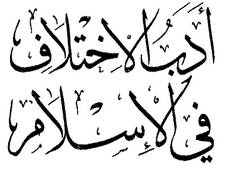 أَدَبُ الاِخْتِلَافِ
فِي الإِسْلَامِ